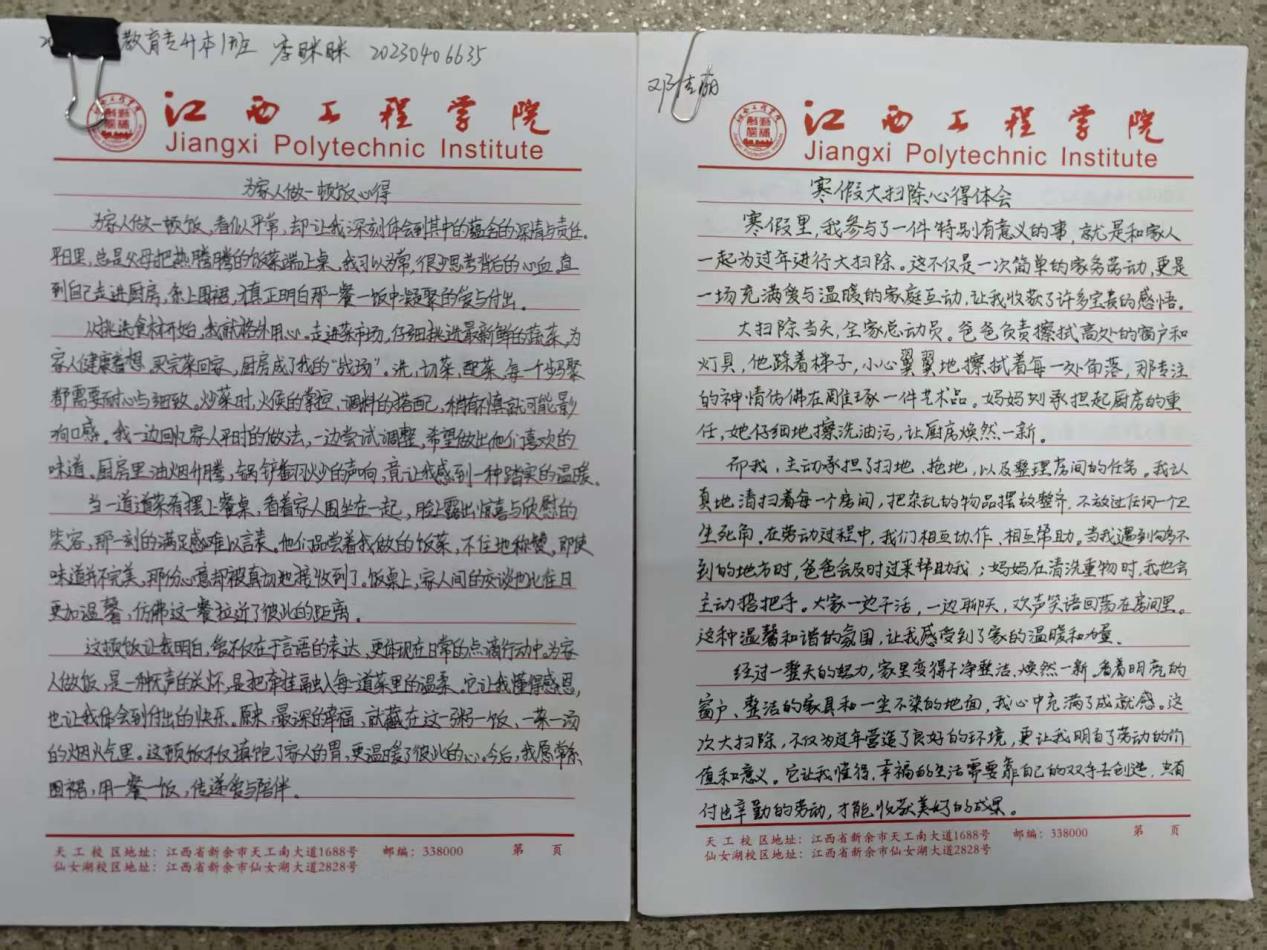 教育专升本1班 李眯眯 20230406635
江西工程学院
Jiangxi Polytechnic Institute
为家人做一顿饭心得
为家人做一顿饭，看似平常，却让我深刻体会到其中的蕴含的深情与责任。
平日里，总是父母把热腾腾的饭菜端上桌，我习以为常，很少思考背后的心血，直
到自己走进厨房，系上围裙，才真正明白那一餐一饭中凝聚的爱与付出。
从挑选食材开始，我就格外用心。走进菜市场，仔细挑选最新鲜的蔬菜，为
家人健康着想。买完菜回家，厨房成了我的“战场”。洗、切菜、配菜，每一个步骤
都需要耐心与细致。炒菜时，火候的掌控，调料的搭配，稍有不慎就可能影
响口感。我一边回忆家人平时的做法，一边尝试调整，希望做出他们喜欢的
味道。厨房里油烟升腾，锅铲翻炒的声响，竟让我感到一种踏实的温暖。
当一道道菜肴摆上餐桌，看着家人围坐在一起，脸上露出惊喜与欣慰的
笑容，那一刻的满足感难以言表。他们品尝着我做的饭菜，不住地称赞，即使
味道并不完美，那份心意却被真切地接收到了。饭桌上，家人间的交谈也比往日
更加温馨，仿佛这一餐拉近了彼此的距离。
这顿饭让我明白，爱不仅在于言语的表达，更体现在日常的点滴行动中。为家
人做饭，是一种无声的关怀，是把牵挂融入每一道菜里的温柔。它让我懂得感恩，
也让我体会到付出的快乐。原来，最深的幸福，就藏在这一粥一饭、一菜一汤
的烟火气里。这顿饭不仅填饱了家人的胃，更温暖了彼此的心。今后，我愿常系
围裙，用一餐一饭，传递爱与陪伴。
天工校区地址：江西省新余市天工南大道1688号 邮编：338000 第 页
仙女湖校区地址：江西省新余市仙女湖大道2828号
邓佳丽
江西工程学院
Jiangxi Polytechnic Institute
寒假大扫除心得体会
寒假里，我参与了一件特别有意义的事，就是和家人
一起为过年进行大扫除。这不仅是一次简单的家务劳动，更是
一场充满爱与温暖的家庭互动，让我收获了许多宝贵的感悟。
大扫除当天，全家总动员。爸爸负责擦拭高处的窗户和
灯具，他踩着梯子，小心翼翼地擦拭着每一处角落，那专注
的神情仿佛在雕琢一件艺术品。妈妈则承担起厨房的重
任，她仔细地擦洗油污，让厨房焕然一新。
而我，主动承担了扫地、拖地，以及整理房间的任务。我认
真地清扫着每一个房间，把杂乱的物品摆放整齐，不放过任何一个卫
生死角。在劳动过程中，我们相互协作、相互帮助。当我遇到够不
到的地方时，爸爸会及时过来帮助我；妈妈在清洗重物时，我也会
主动搭把手。大家一边干活，一边聊天，欢声笑语回荡在房间里。
这种温馨和谐的氛围，让我感受到了家的温暖和力量。
经过一整天的努力，家里变得干净整洁，焕然一新。看着明亮的
窗户、整洁的家具和一尘不染的地面，我心中充满了成就感。这
次大扫除，不仅为过年营造了良好的环境，更让我明白了劳动的价
值和意义。它让我懂得，幸福的生活需要靠自己的双手去创造，只有
付出辛勤的劳动，才能收获美好的成果。
天工校区地址：江西省新余市天工南大道1688号 邮编：338000 第 页
仙女湖校区地址：江西省新余市仙女湖大道2828号